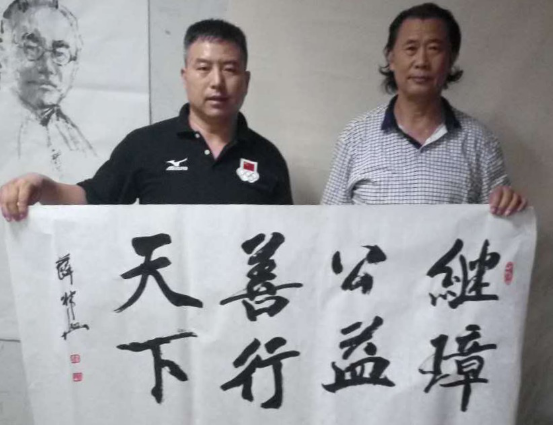 继璋
公益
善行
天下